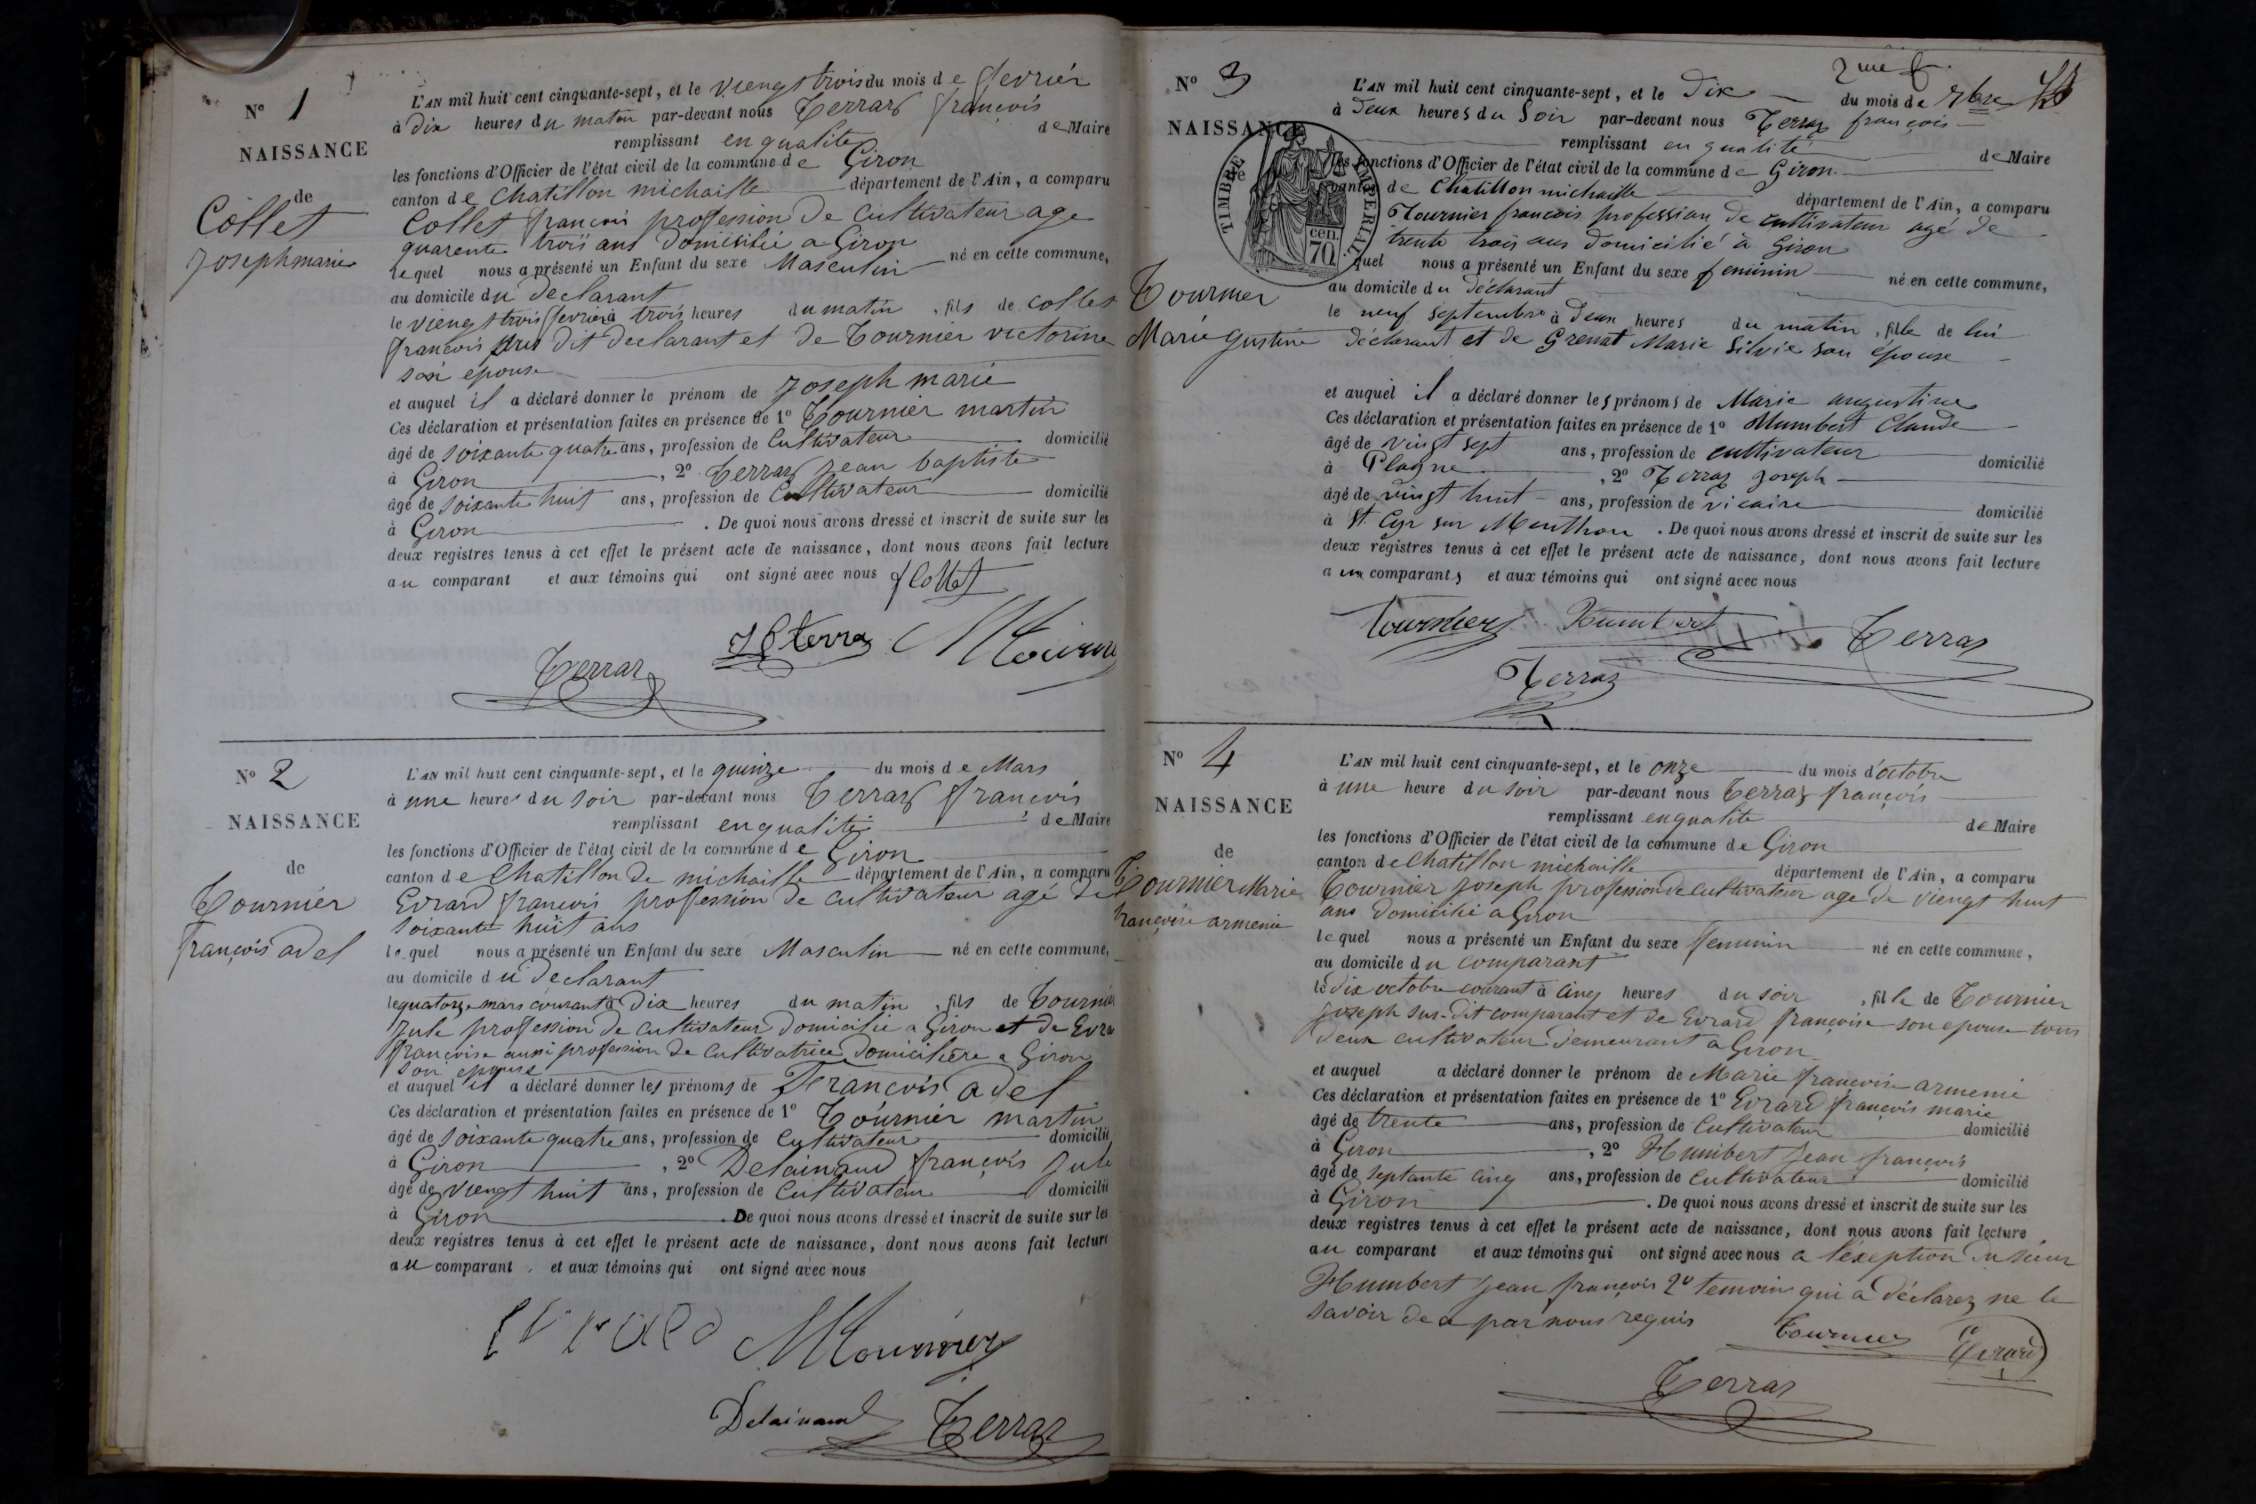 N° 1
NAISSANCE
de
Collet
Joseph marie
L'AN mil huit cent cinquante-sept, et le viengt trois du mois de fevrier
à dix heures du matin par-devant nous Terraz françois
remplissant en qualite de Maire
les fonctions d'Officier de l'état civil de la commune de Giron
canton de Chatillon michaille département de l'Ain, a comparu
Collet francois profession de cultivateur age
quarente trois ans domicilié a Giron
lequel nous a présenté un Enfant du sexe Masculin né en cette commune,
au domicile du declarant
le viengt trois fevrier à trois heures du matin, fils de Collet
francois sus dit declarant et de Tournier victorine
son epouse
et auquel il a déclaré donner le prénom de Joseph marie
Ces déclaration et présentation faites en présence de 1° Tournier martin
âgé de soixante quatre ans, profession de Cultivateur domicilié
à Giron, 2° Terraz jean baptiste
âgé de soixante huit ans, profession de Cultivateur domicilié
à Giron. De quoi nous avons dressé et inscrit de suite sur les
deux registres tenus à cet effet le présent acte de naissance, dont nous avons fait lecture
au comparant et aux témoins qui ont signé avec nous f Collet
JB terraz MTournier
Terraz
N° 2
NAISSANCE
de
Tournier
françois adel
L'AN mil huit cent cinquante-sept, et le quinze du mois de Mars
à une heures du soir par-devant nous Terraz françois
remplissant en qualité de Maire
les fonctions d'Officier de l'état civil de la commune de Giron
canton de Chatillon de michaille département de l'Ain, a comparu
Evrard francois profession de cultivateur agé de
soixante huit ans
lequel nous a présenté un Enfant du sexe Masculin né en cette commune,
au domicile du declarant
le quatorze mars courant à dix heures du matin, fils de Tournier
Jule profession de cultivateur domicilié a Giron et de Evra
françoise aussi profession de cultivatrice domicilière a Giron
son epouse
et auquel il a déclaré donner les prénoms de François adel
Ces déclaration et présentation faites en présence de 1° Tournier martin
âgé de soixante quatre ans, profession de Cultivateur domicilié
à Giron, 2° Delainaud françois Jule
âgé de viengt huit ans, profession de Cultivateur domicilié
à Giron. De quoi nous avons dressé et inscrit de suite sur les
deux registres tenus à cet effet le présent acte de naissance, dont nous avons fait lecture
au comparant, et aux témoins qui ont signé avec nous
Evrard MTournier
Delainaud Terraz
2me f.
N° 3
NAISSANCE
TIMBRE IMPERIAL
cen. 70
Tournier
Marie gustine
L'AN mil huit cent cinquante-sept, et le Dix du mois de 7bre
à Deux heures du Soir par-devant nous Terraz françois
remplissant en qualité de Maire
les fonctions d'Officier de l'état civil de la commune de Giron
canton de Chatillon michaille département de l'Ain, a comparu
Tournier francois profession de cultivateur agé de
trente trois ans domicilié à Giron
quel nous a présenté un Enfant du sexe feminin né en cette commune,
au domicile du déclarant
le neuf Septembre à Deux heures du matin, fille de lui
déclarant et de Grenat Marie Silvie son épouse
et auquel il a déclaré donner les prénoms de Marie augustine
Ces déclaration et présentation faites en présence de 1° Humbert Claude
âgé de vingt sept ans, profession de cultivateur domicilié
à Plagne, 2° Terraz Joseph
âgé de vingt huit ans, profession de vicaire domicilié
à St. Cyr sur Menthon. De quoi nous avons dressé et inscrit de suite sur les
deux registres tenus à cet effet le présent acte de naissance, dont nous avons fait lecture
aux comparants et aux témoins qui ont signé avec nous
Tournier Humbert Terraz
Terraz
N° 4
NAISSANCE
de
Tournier Marie
françoise armenie
L'AN mil huit cent cinquante-sept, et le onze du mois d'octobre
à une heure du soir par-devant nous Terraz françois
remplissant en qualite de Maire
les fonctions d'Officier de l'état civil de la commune de Giron
canton de Chatillon michaille département de l'Ain, a comparu
Tournier Joseph profession de cultivateur age de viengt huit
ans domicilié a Giron
lequel nous a présenté un Enfant du sexe feminin né en cette commune,
au domicile du comparant
le dix octobre courant à cinq heures du soir, fille de Tournier
Joseph sus-dit comparant et de Evrard françoise son epouse tous
deux cultivateur demeurant a Giron
et auquel a déclaré donner le prénom de Marie françoise armenie
Ces déclaration et présentation faites en présence de 1° Evrard françois marie
âgé de trente ans, profession de Cultivateur domicilié
à Giron, 2° Humbert jean françois
âgé de septante cinq ans, profession de Cultivateur domicilié
à Giron. De quoi nous avons dressé et inscrit de suite sur les
deux registres tenus à cet effet le présent acte de naissance, dont nous avons fait lecture
au comparant et aux témoins qui ont signé avec nous a l'exeption du sieur
Humbert jean françois 2° temoin qui a déclarez ne le
savoir de a par nous requis
Tournier Evrard
Terraz